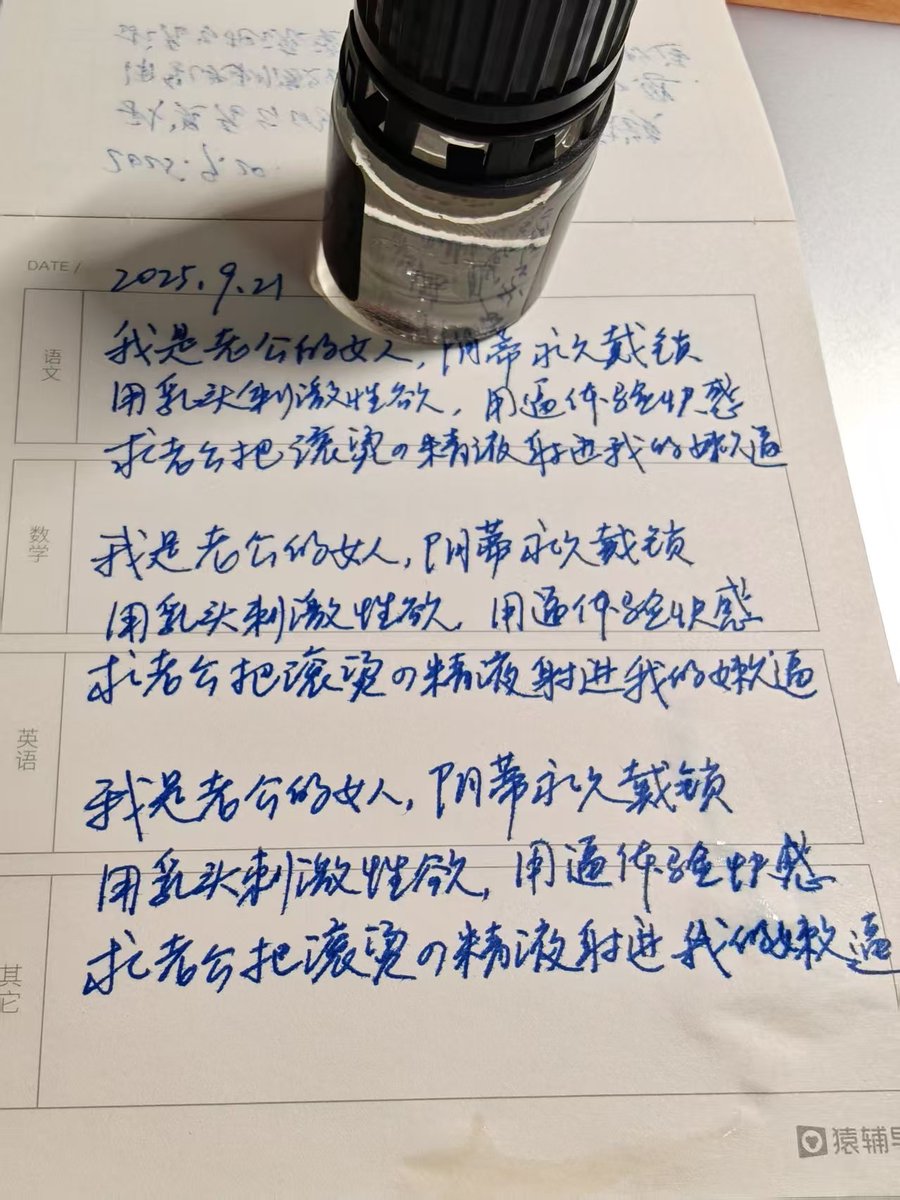 2025.9.20
DATE /
2025.9.21
语文
我是老公的女人，阴蒂永久戴锁
用乳头刺激性欲，用逼体验快感
求老公把滚烫の精液射进我的嫩逼
数学
我是老公的女人，阴蒂永久戴锁
用乳头刺激性欲，用逼体验快感
求老公把滚烫の精液射进我的嫩逼
英语
我是老公的女人，阴蒂永久戴锁
用乳头刺激性欲，用逼体验快感
求老公把滚烫の精液射进我的嫩逼
其它
猿辅导